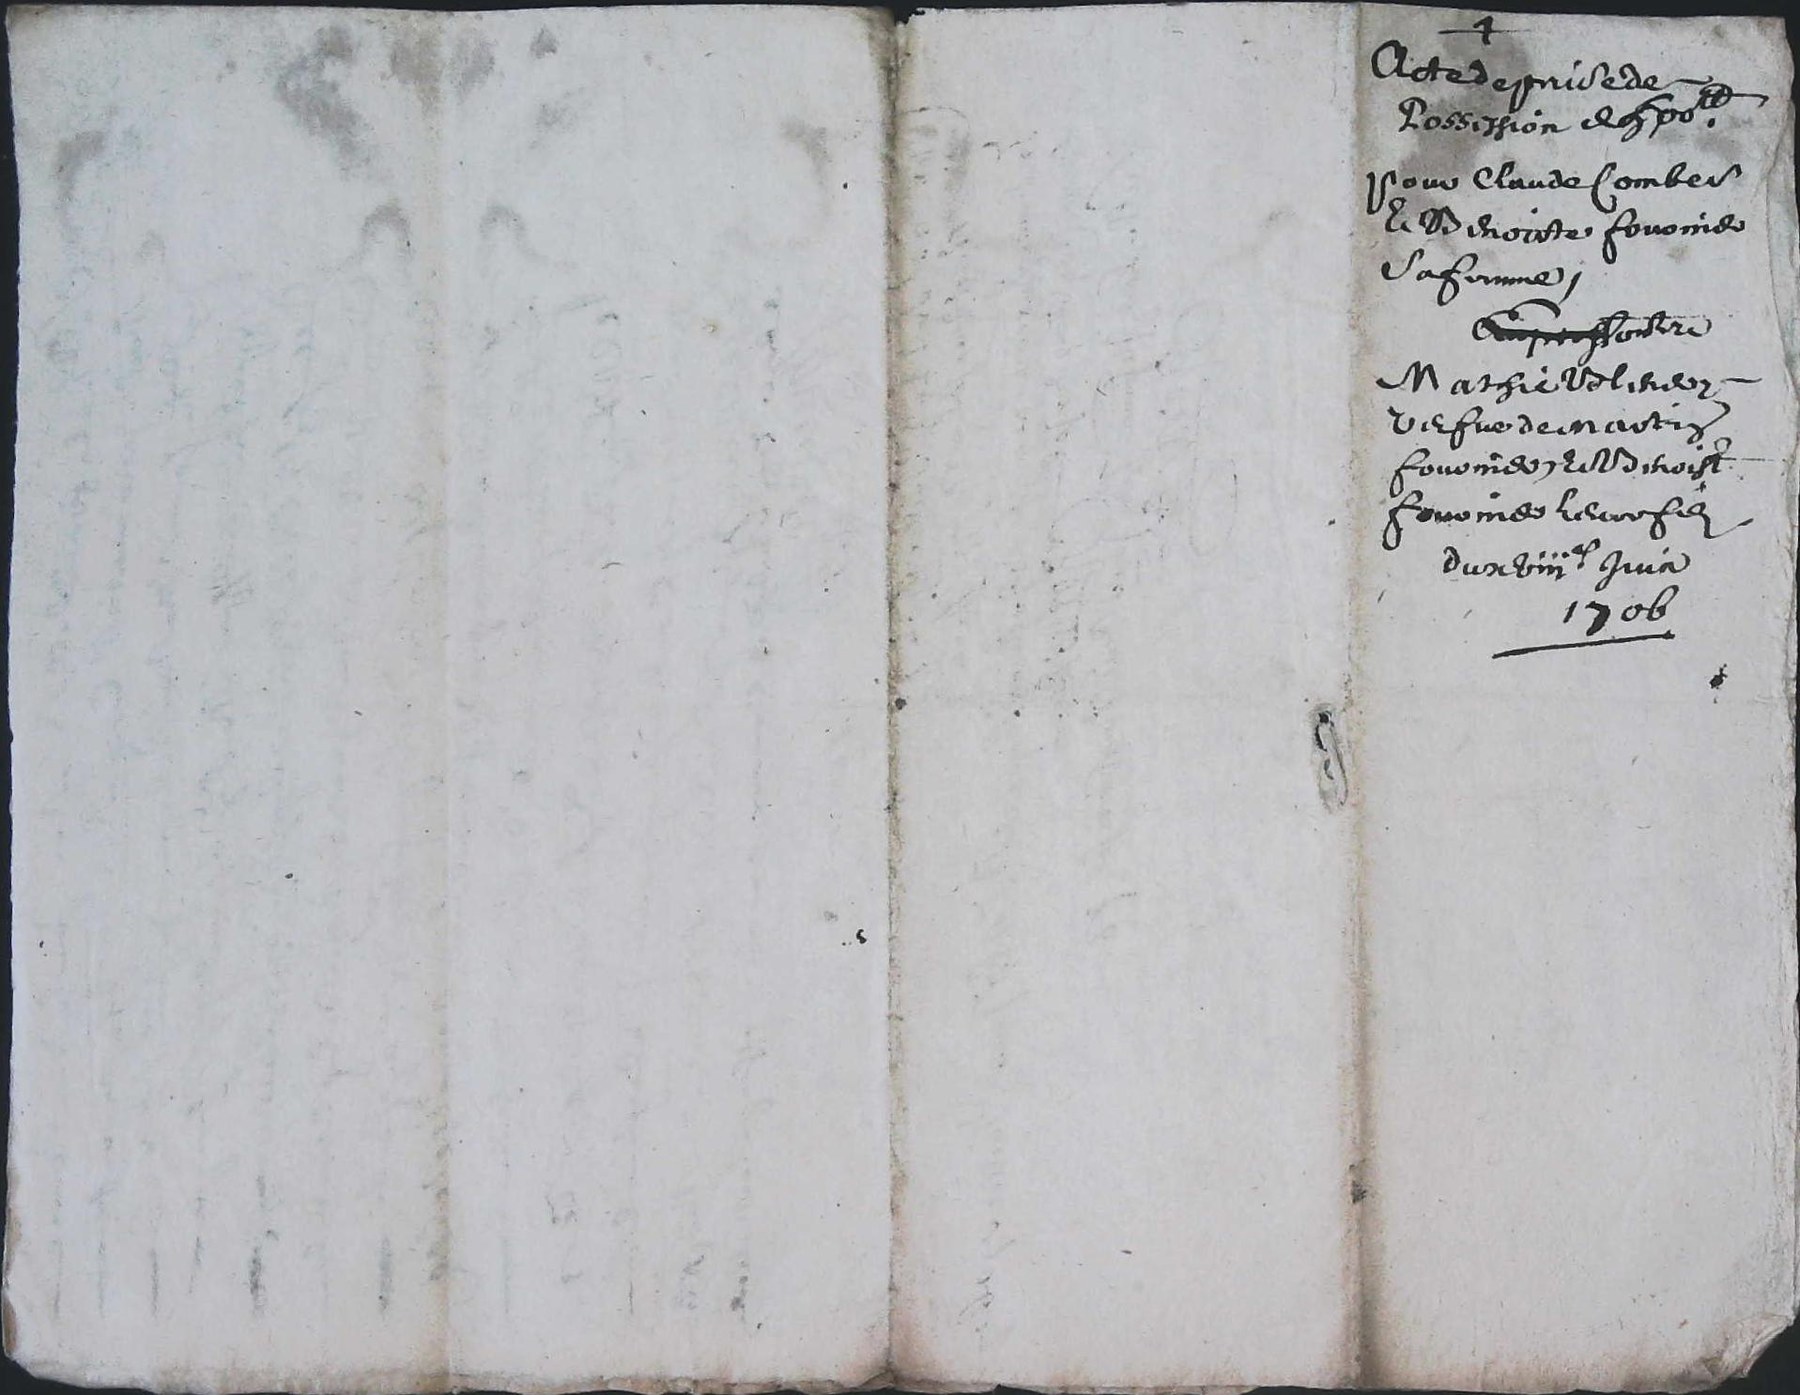 4
Acte de prise de
Possession
pour Claude Combes
et Benoiste fournier
Sa femme /
contre
Mathie
vefve de martin
fournier et Benoist
fournier leur fils
du xviii.e Juin
1706